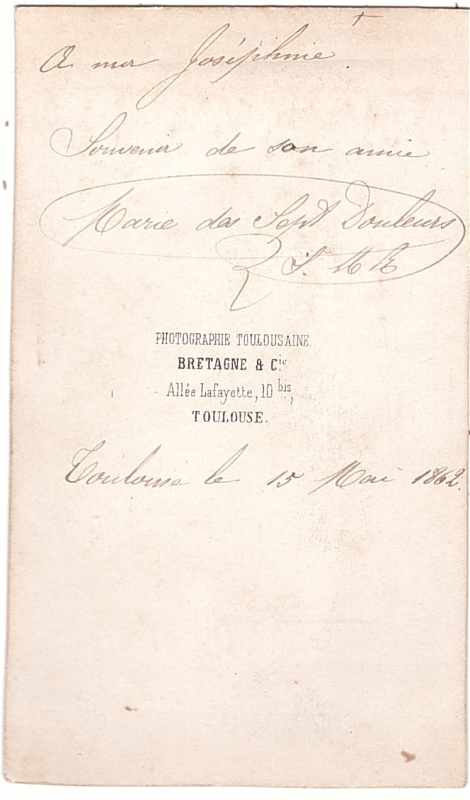 A ma Joséphine.
Souvenir de son amie
Marie des Sept Douleurs
PHOTOGRAPHIE TOULOUSAINE.
BRETAGNE & Cie
Allée Lafayette, 10 bis,
TOULOUSE.
Toulouse le 15 Mai 1862.